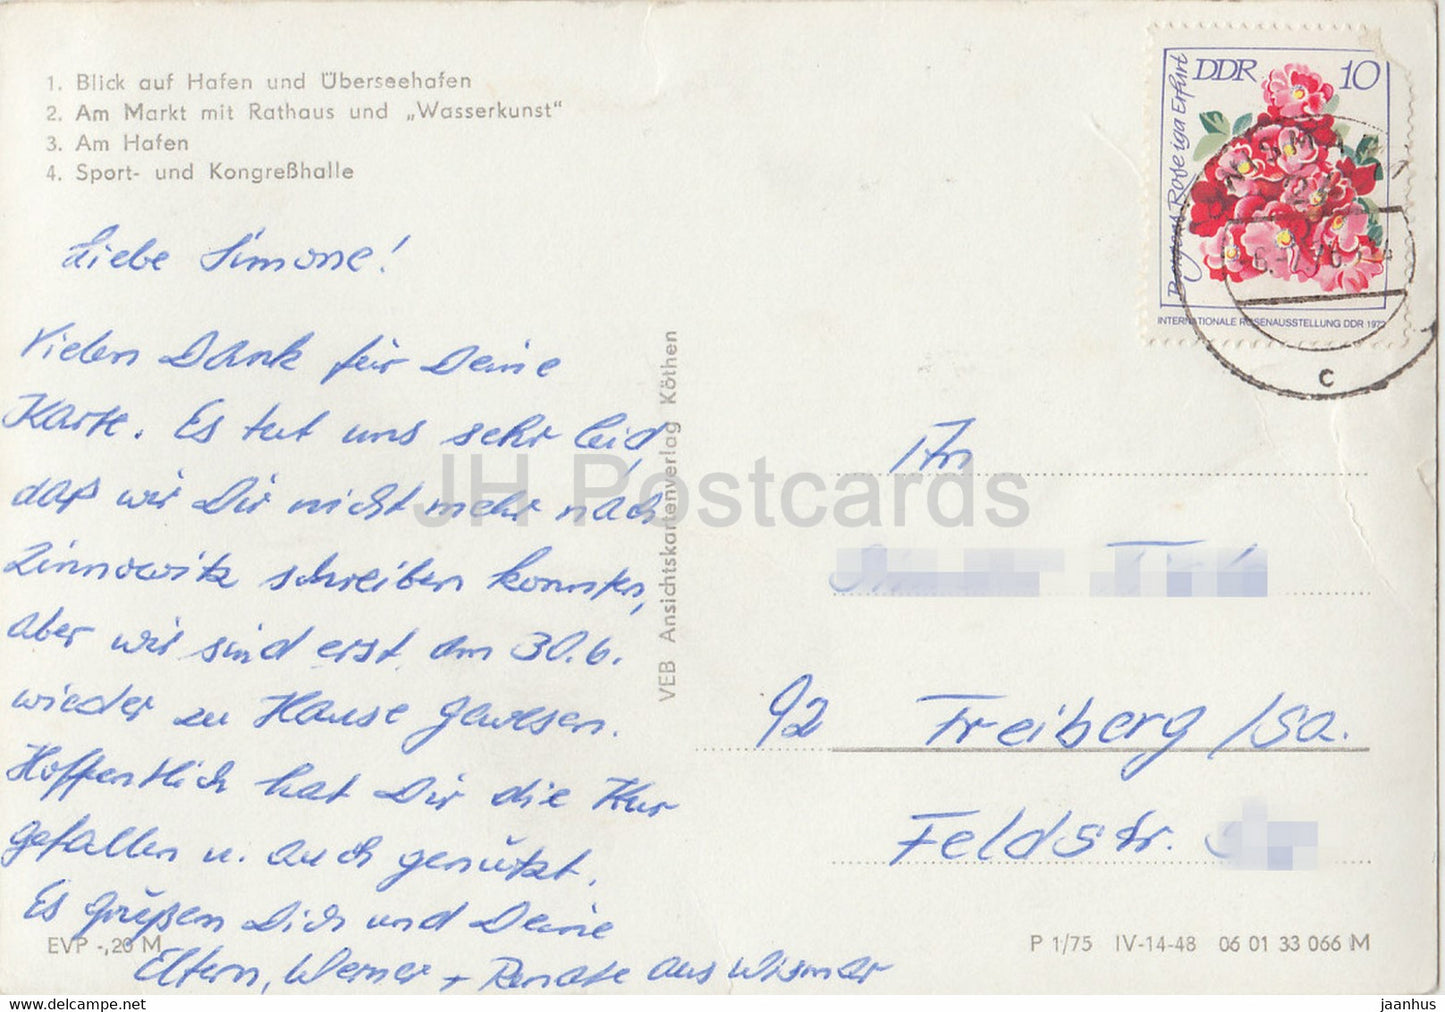 1. Blick auf Hafen und Überseehafen
2. Am Markt mit Rathaus und „Wasserkunst"
3. Am Hafen
4. Sport- und Kongreßhalle
Liebe Simone!
Vielen Dank für Deine
Karte. Es tut uns sehr leid,
daß wir Dir nicht mehr nach
Zinnowitz schreiben konnten,
aber wir sind erst am 30.6.
wieder zu Hause gewesen.
Hoffentlich hat Dir die Kur
gefallen u. auch genützt.
Es grüßen Dich und Deine
Eltern, Werner + Renate aus Wismar
EVP -,20 M
VEB Ansichtskartenverlag Köthen
DDR 10
Bergers Rose iga Erfurt
INTERNATIONALE ROSENAUSSTELLUNG DDR 1972
WISMAR 1
c
An
92 Freiberg /Sa.
Feldstr.
P 1/75 IV-14-48 06 01 33 066 M
JH Postcards
www.delcampe.net
jaanhus